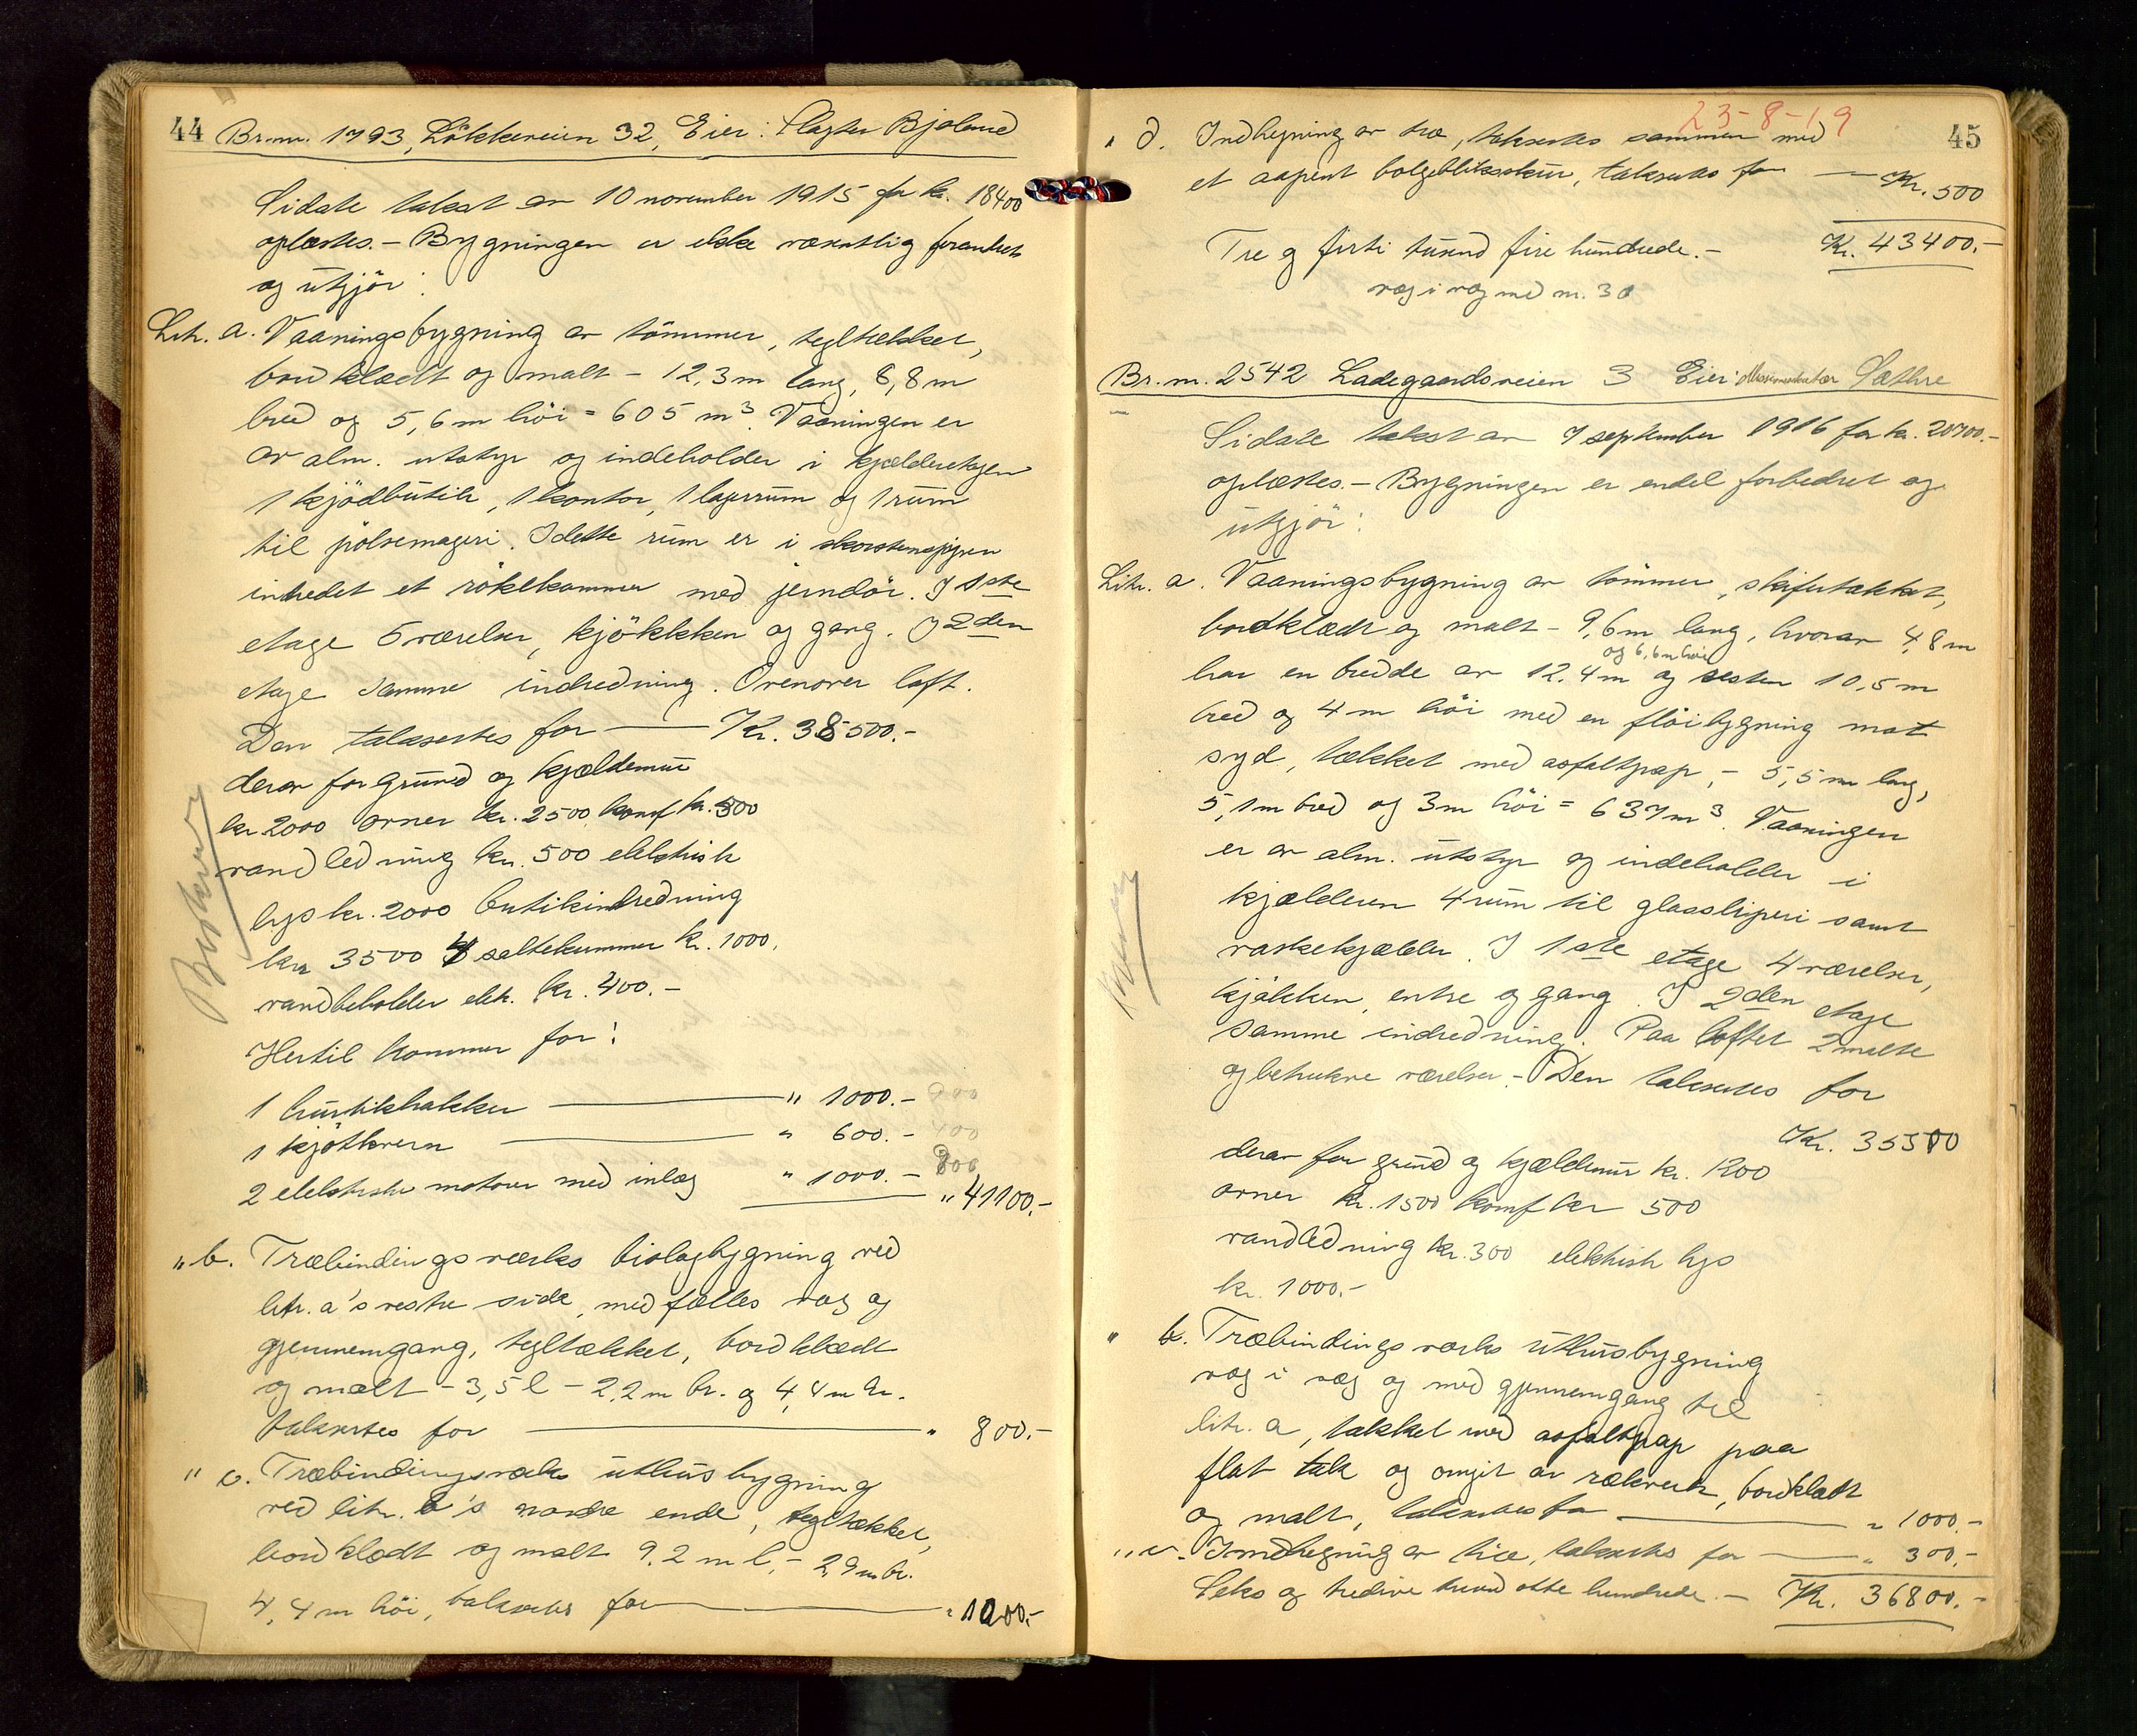 44 Br.nr. 1793, Løkkeveien 32, Eier: Slagter Bjelland
Sidste takst av 10 november 1915 for kr. 18400
oplæstes. – Bygningen er ikke væsentlig forandret
og utgjör:
Litr. a. Vaaningsbygning av tömmer, tegltækket,
bordklædt og malt – 12,3 m lang, 8,8 m
bred og 5,6 m höi = 605 m³. Vaaningen er
av alm. utstyr og indeholder i kjælderetagen
1 kjödbutik, 1 kontor, 1 lagerrum og 1 rum
til pölsemageri. I dette rum er i skorstenspipen
indredet et rökekammer med jerndör. I 1ste
etage 5 værelser, kjökken og gang. I 2den
etage samme indredning. Ovenover loft.
Den takseres for — Kr. 38500.-
derav for grund og kjældermur
kr. 2000 ovner kr. 2500 komf kr. 500
vandledning kr. 500 elektrisk
lys kr. 2000 butikindredning
kr 3500 4 saltekummer kr. 1000,
vandbeholder elek. kr. 400.-
Hertil kommer for:
1 hurtikhakker — " 1000.- 900
1 kjötkvern — " 600.- 400
2 elektriske motorer med inlæg " 1000.- 800
" 41100.-
" b. Træbindingsverks bislagbygning ved
litr. a's vestre side, med fælles væg og
gjennemgang, tegltækket, bordklædt
og malt – 3,5 l – 2,2 m br. og 4,4 m h.
takseres for — " 800.-
" c. Træbindingsverks uthusbygning
ved litr. b's nordre ende, tegltækket,
bordklædt og malt 9,2 m l, – 2,9 m br.
4,4 m höi, takseres for — " 1000.-
23-8-19
45
" d. Indhegning av træ, takseres sammen med
et aapent bølgebliksskur, takseres for — Kr. 500
Tre og firti tusend fire hundrede. – Kr. 43400.-
væg i væg med nr. 30
Br.nr. 2542 Ladegaardsveien 3 Eier: Missionssekretær Sæthre
Sidste takst av 7 september 1916 for kr. 20700.-
oplæstes. – Bygningen er endel forbedret og
utgjör:
Litr. a. Vaaningsbygning av tömmer, skifertækket,
bordklædt og malt – 9,6 m lang, hvorav 4,8 m
og 6,6 m höi
har en bredde av 12,4 m og resten 10,5 m
bred og 4 m höi med en flöibygning mot
syd, tækket med asfaltpap, – 5,5 m lang,
5,1 m bred og 3 m höi = 637 m³. Vaaningen
er av alm. utstyr og indeholder i
kjælderen 4 rum til glassliperi samt
vaskekjælder. I 1ste etage 4 værelser,
kjökken, entre og gang. I 2den etage
samme indredning. Paa loftet 2 malte
og betrukne værelser. – Den takseres for
Kr. 35500
derav for grund og kjældermur kr. 1200
ovner kr. 1500 komf kr 500
vandledning kr. 300 elektrisk lys
kr. 1000.-
" b. Træbindingsverks uthusbygning
væg i væg og med gjennemgang til
litr. a, tækket med asfaltpap paa
flat tak og omgit av rækverk, bordklædt
og malt, takseres for — " 1000.-
" c. Indhegning av træ, takseres for — " 300.-
Seks og tredive tusend otte hundrede. – Kr. 36800.-